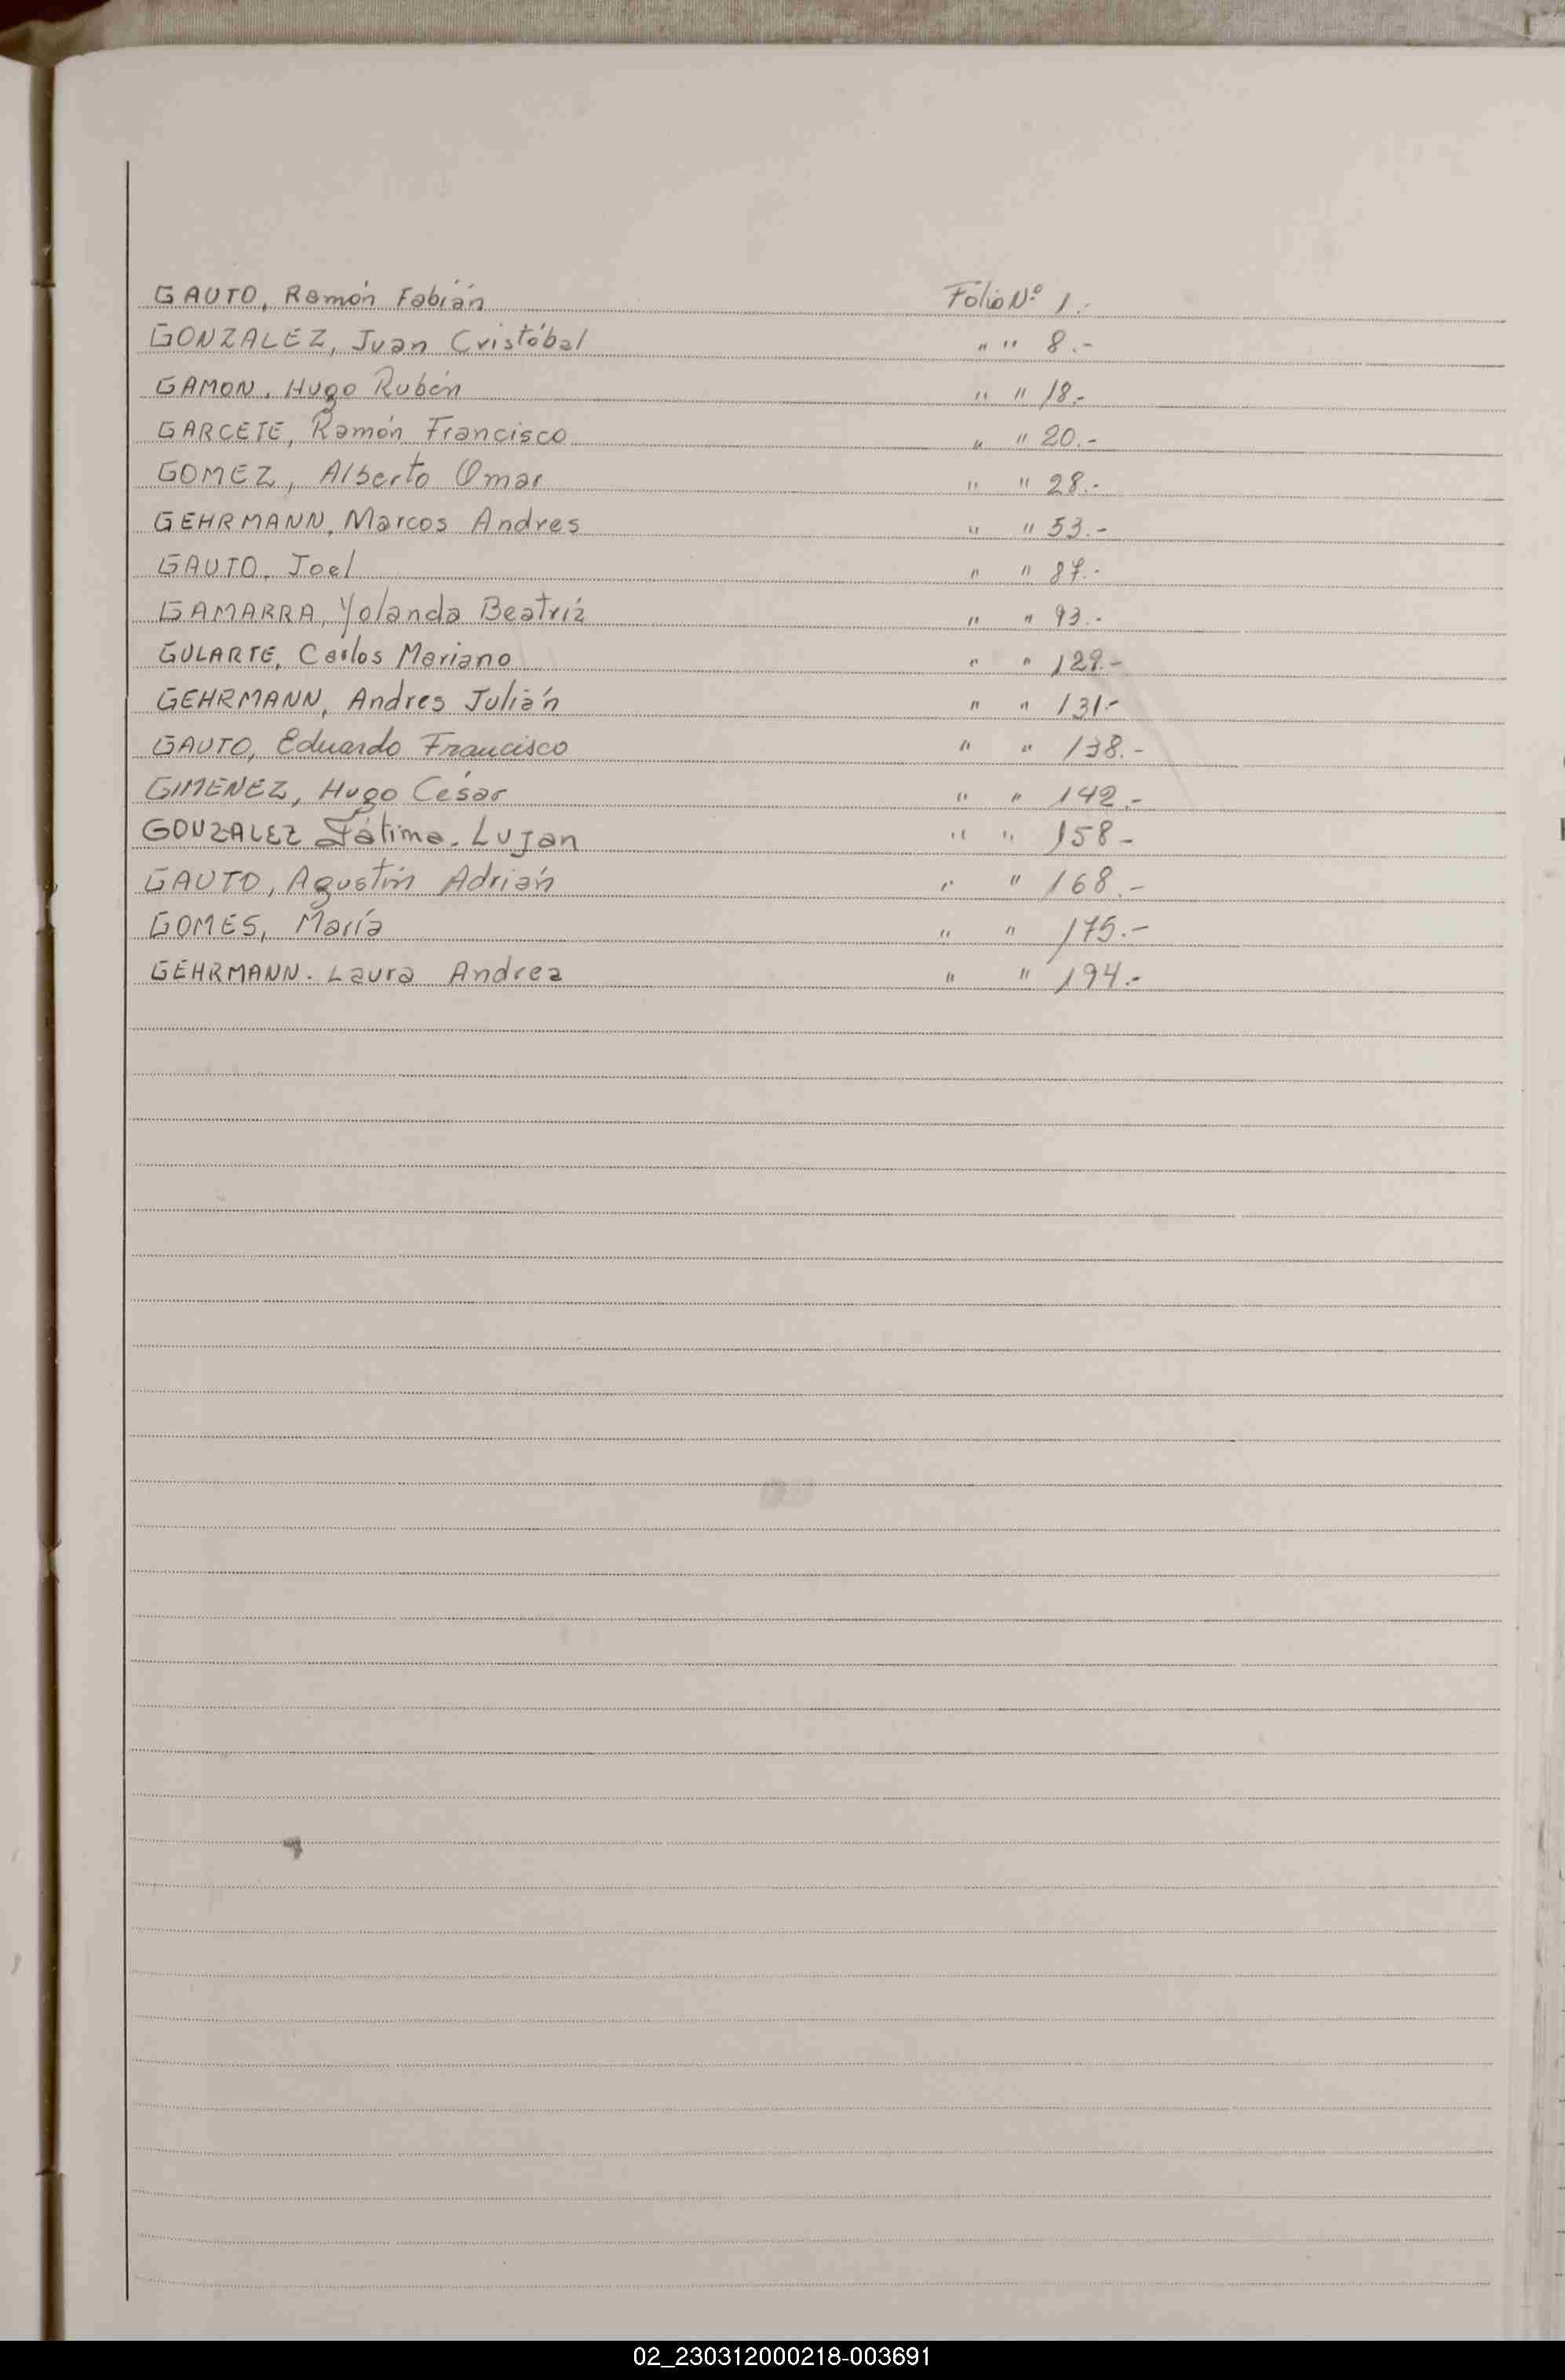 GAUTO, Ramón Fabián Folio Nº 1.-
GONZALEZ, Juan Cristóbal " " 8.-
GAMON, Hugo Rubén " " 18.-
GARCETE, Ramón Francisco " " 20.-
GOMEZ, Alberto Omar " " 28.-
GEHRMANN, Marcos Andres " " 53.-
GAUTO, Joel " " 87.-
GAMARRA, Yolanda Beatríz " " 93.-
GULARTE, Carlos Mariano " " 129.-
GEHRMANN, Andres Julián " " 131.-
GAUTO, Eduardo Francisco " " 138.-
GIMENEZ, Hugo César " " 142.-
GONZALEZ Fátima. Lujan " " 158-
GAUTO, Agustín Adrián " " 168.-
GOMES, María " " 175.-
GEHRMANN. Laura Andrea " " 194.-
02_230312000218-003691